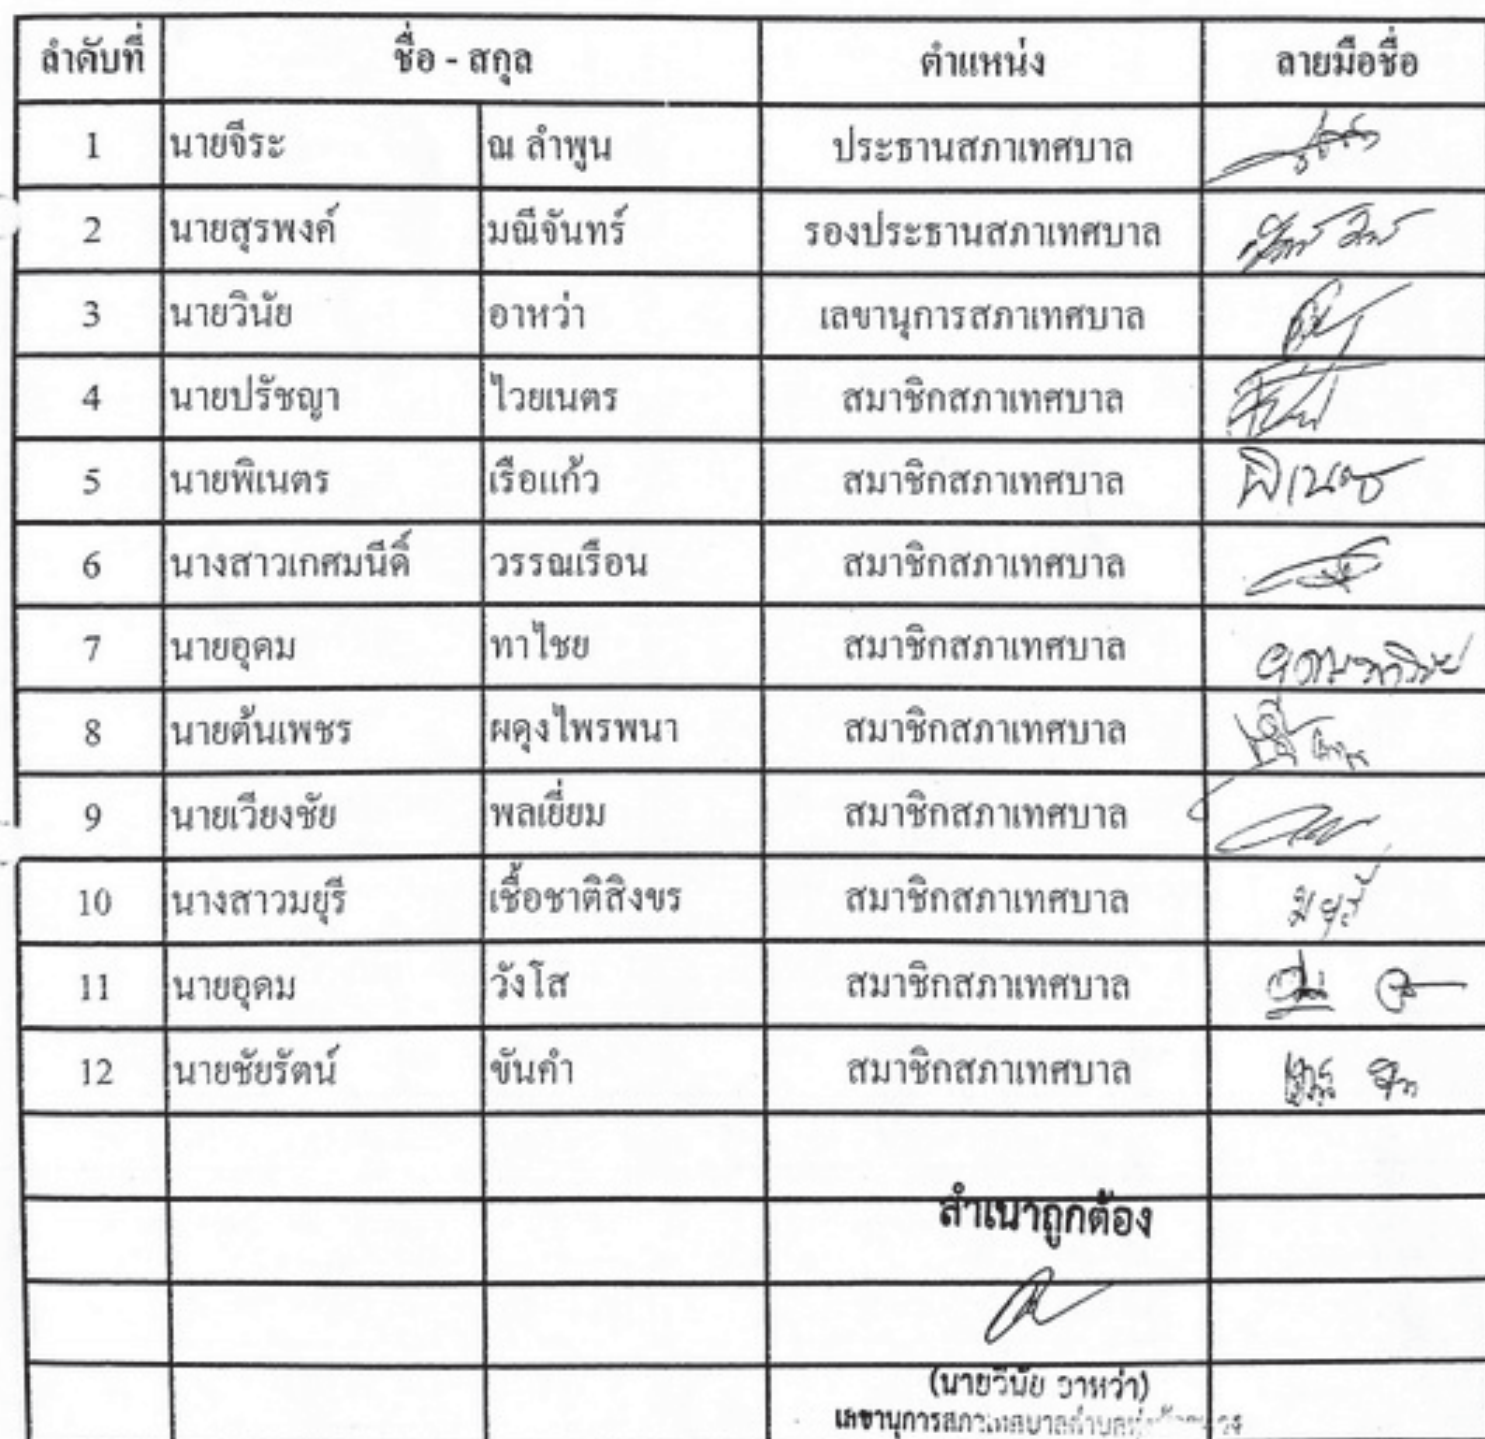 ลำดับที่ ชื่อ - สกุล ตำแหน่ง ลายมือชื่อ
1 นายจีระ ณ ลำพูน ประธานสภาเทศบาล
2 นายสุรพงค์ มณีจันทร์ รองประธานสภาเทศบาล
3 นายวินัย อาหว่า เลขานุการสภาเทศบาล
4 นายปรัชญา ไวยเนตร สมาชิกสภาเทศบาล
5 นายพิเนตร เรือแก้ว สมาชิกสภาเทศบาล พิเนตร
6 นางสาวเกศมนีดิ์ วรรณเรือน สมาชิกสภาเทศบาล
7 นายอุดม ทาไชย สมาชิกสภาเทศบาล
8 นายต้นเพชร ผดุงไพรพนา สมาชิกสภาเทศบาล
9 นายเวียงชัย พลเยี่ยม สมาชิกสภาเทศบาล
10 นางสาวมยุรี เชื้อชาติสิงขร สมาชิกสภาเทศบาล
11 นายอุดม วังโส สมาชิกสภาเทศบาล
12 นายชัยรัตน์ ขันคำ สมาชิกสภาเทศบาล
สำเนาถูกต้อง
(นายวินัย อาหว่า)
เลขานุการสภาเทศบาลตำบล